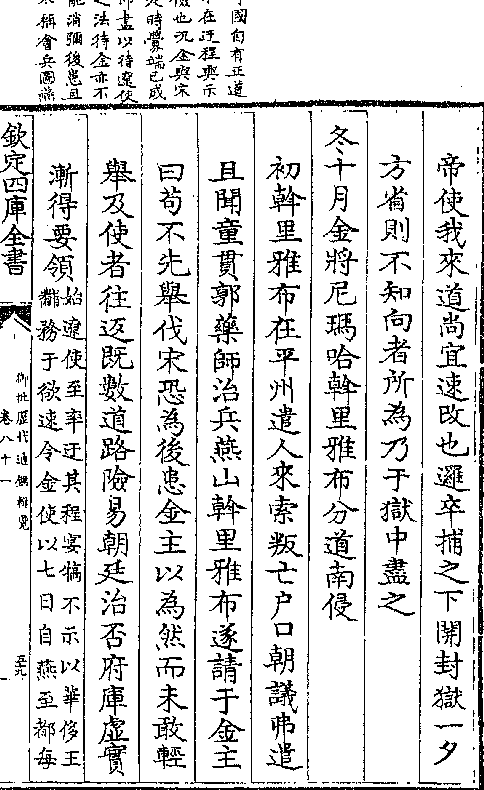 帝使我來道尚宜速改也邏卒捕之下開封獄一夕
方省則不知向者所為乃于獄中盡之
冬十月金將尼瑪哈斡里雅布分道南侵
初斡里雅布在平州遣人來索叛亡户口朝議弗遣
且聞童貫郭藥師治兵燕山斡里雅布遂請于金主
曰苟不先舉伐宋恐為後患金主以為然而未敢輕
舉及使者往返既數道路險易朝廷治否府庫虛實
漸得要領
始遼使至率迂其程宴犒不示以華侈王
黼務于欲速令金使以七日自燕至都每
欽定四庫全書
御批歷代通鑑輯覽
卷八十一
至九
國自有正道
不在迂程與示
儉也況金與宋
時釁端已成
盡以待遼使
之法待金亦不
能消彌後患且
稱會兵圖燕